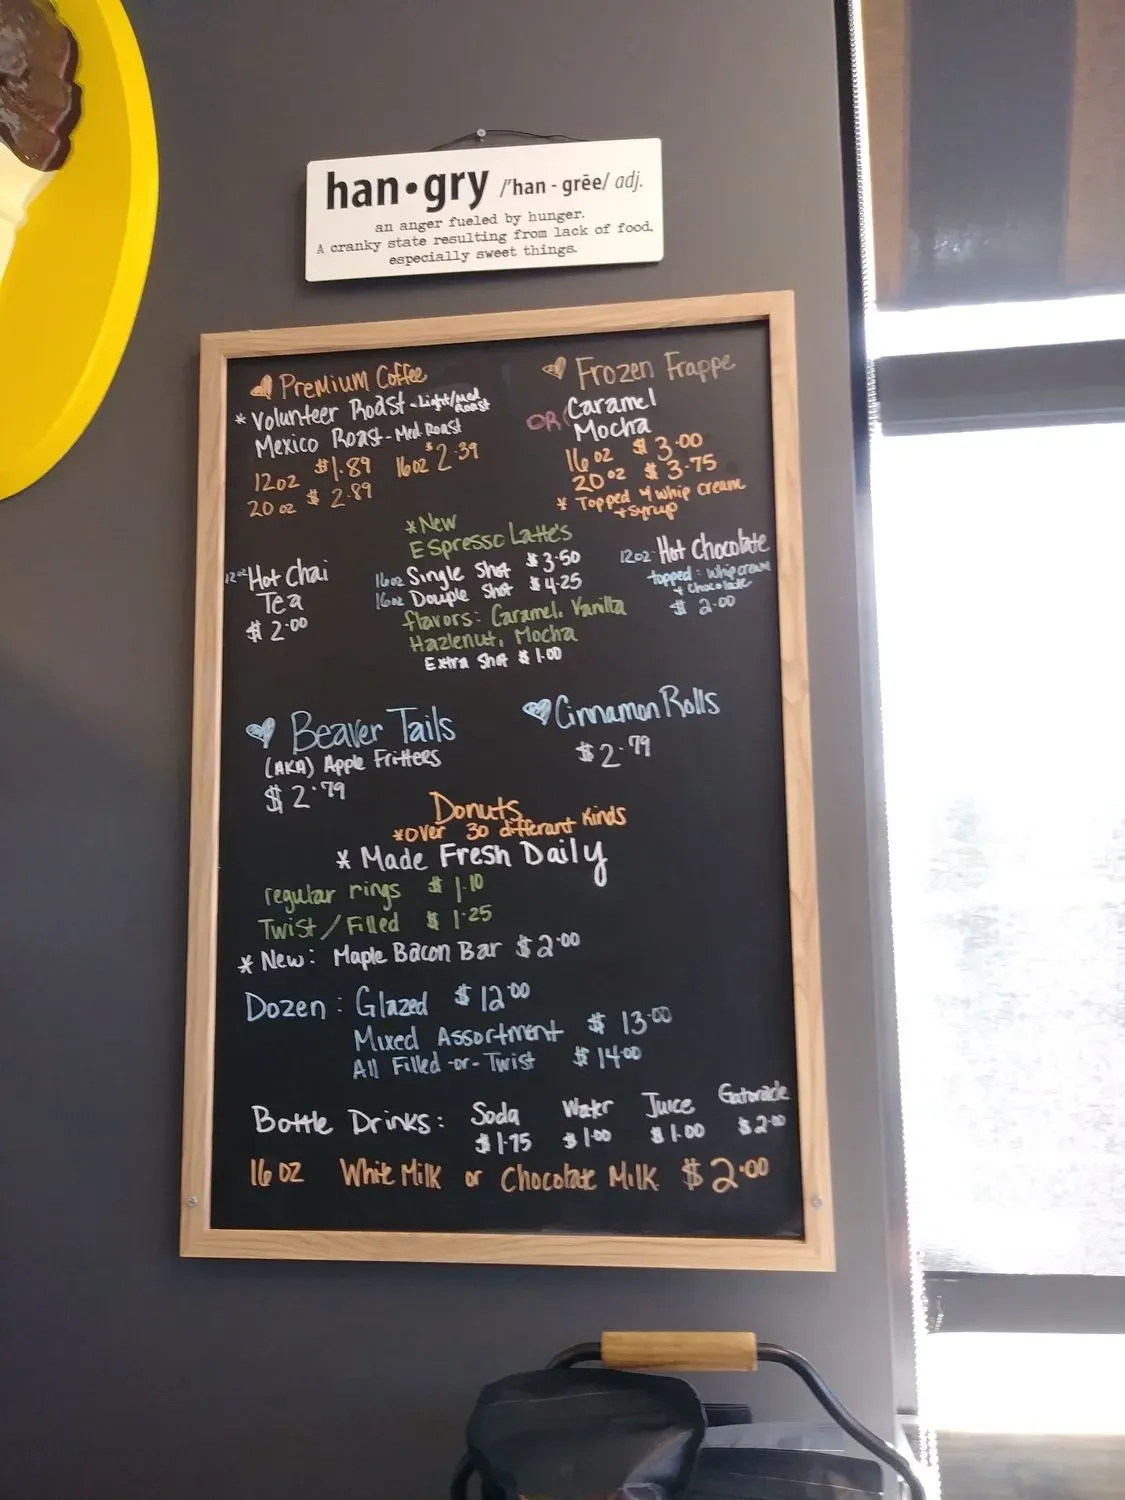 han•gry /'han - grēe/ adj.
an anger fueled by hunger.
A cranky state resulting from lack of food,
especially sweet things.
Premium Coffee
* Volunteer Roast - Light/Med Roast
Mexico Roast - Med Roast
12oz $1.89 16oz $2.39
20 oz $2.89
Frozen Frappe
Caramel
OR
Mocha
16 oz $3.00
20 oz $3.75
* Topped w/ whip cream
+ syrup
*New
Espresso Latte's
16oz Single Shot $3.50
16oz Douple Shot $4.25
flavors: Caramel, Vanilla
Hazlenut, Mocha
Extra Shot $1.00
12oz Hot Chai
Tea
$2.00
12oz Hot Chocolate
topped: whip cream
+ chocolate
$2.00
Beaver Tails
(AKA) Apple Frittees
$2.79
Cinnamon Rolls
$2.79
Donuts
*over 30 differant kinds
* Made Fresh Daily
regular rings $1.10
Twist / Filled $1.25
* New: Maple Bacon Bar $2.00
Dozen: Glazed $12.00
Mixed Assortment $13.00
All Filled -or- Twist $14.00
Bottle Drinks: Soda Water Juice Gatorade
$1.75 $1.00 $1.00 $2.00
16 oz White Milk or Chocolate Milk $2.00